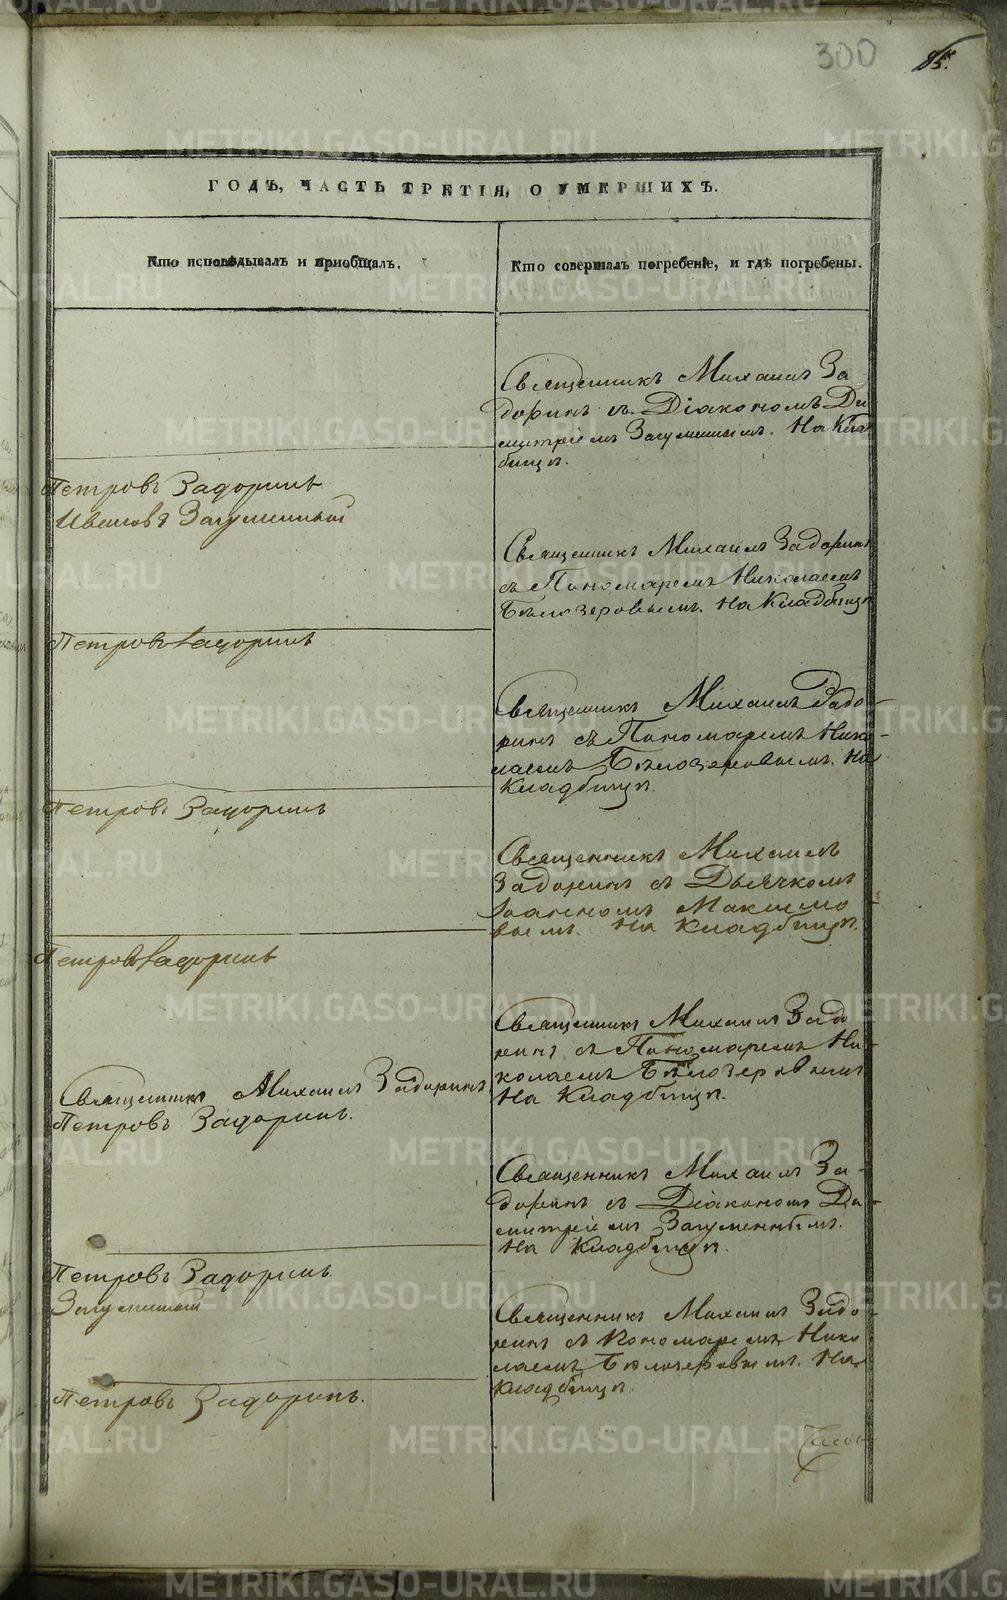 300
85.
ГОДЪ, ЧАСТЬ ТРЕТІЯ, О УМЕРШИХЪ.
Кто исповѣдывалъ и приобщалъ.
Кто совершалъ погребеніе, и гдѣ погребены.
Священникъ Михаилъ За
доринъ съ Діакономъ Ди
митріемъ Загуменнымъ. На Клад
бищѣ.
Петровъ Задоринъ
Ивановъ Загуменный
Священникъ Михаилъ Задоринъ
съ Пономаремъ Николаемъ
Бѣлозеровымъ. На Кладбищѣ
Петровъ Задоринъ
Священникъ Михаилъ Задо-
ринъ съ Пономаремъ Нико-
лаемъ Бѣлозеровымъ. На
Кладбищѣ.
Петровъ Задоринъ
Священникъ Михаилъ
Задоринъ съ Дьячкомъ
Іоанномъ Максимо
вымъ. На Кладбищѣ.
Петровъ Задоринъ
Священникъ Михаилъ Задо
ринъ съ Пономаремъ Ни-
колаемъ Бѣлозеровымъ
На Кладбищѣ.
Священникъ Михаилъ Задоринъ
Петровъ Задоринъ.
Священникъ Михаилъ За-
доринъ съ Діакономъ Ди-
митріемъ Загуменнымъ.
На Кладбищѣ.
Петровъ Задоринъ
Загуменный
Священникъ Михаилъ Задо-
ринъ съ Пономаремъ Нико
лаемъ Бѣлозеровымъ. На
Кладбищѣ.
Петровъ Задоринъ.
METRIKI.GASO-URAL.RU